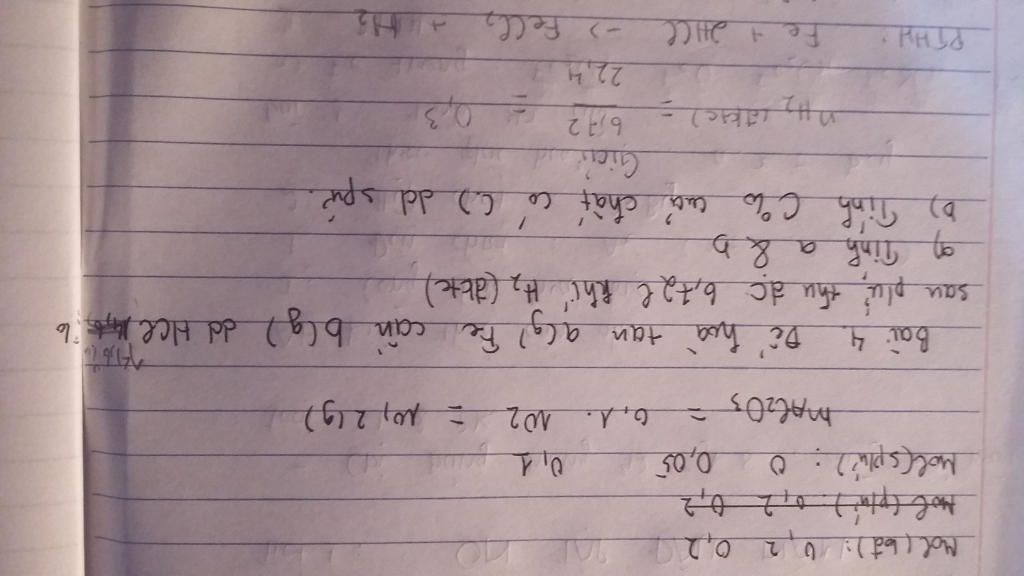 Mol(bđ): 0,2 0,2
Mol(pứ): 0,2 0,2
Mol(spứ): 0 0,05 0,1
mAl2O3 = 0,1 . 102 = 10,2 (g)
Bài 4. Để hoà tan a(g) Fe cần b(g) dd HCl
sau pứ, thu đc 6,72 l khí H2 (đktc)
a) Tính a & b
b) Tính C% của chất có () dd spứ.
Giải
nH2 (đktc) = 6,72 / 22,4 = 0,3
PTHH: Fe + 2HCl -> FeCl2 + H2